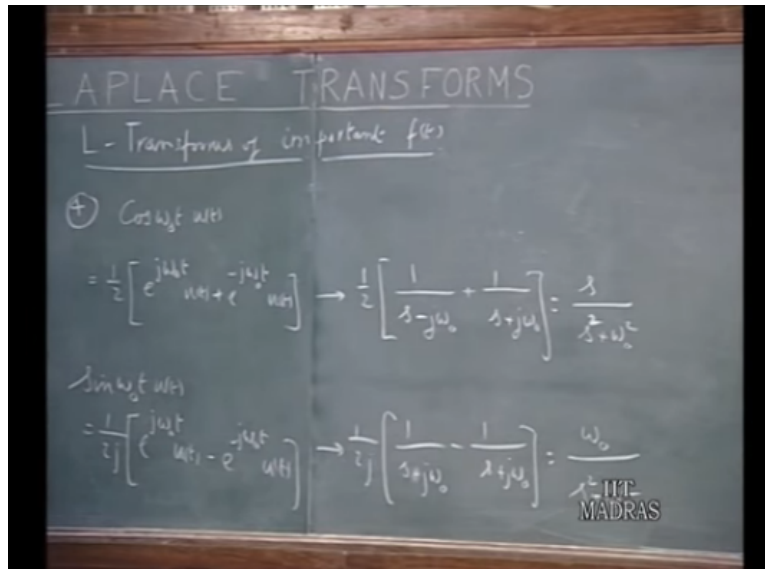 LAPLACE TRANSFORMS
L - Transforms of important f(t)
④ Cos ω₀t u(t)
= 1/2 [e^{jω₀t} u(t) + e^{-jω₀t} u(t)] → 1/2 [1/(s-jω₀) + 1/(s+jω₀)] = s/(s²+ω₀²)
Sin ω₀t u(t)
= 1/2j [e^{jω₀t} u(t) - e^{-jω₀t} u(t)] → 1/2j [1/(s+jω₀) - 1/(s+jω₀)] = ω₀/s²
IIT
MADRAS